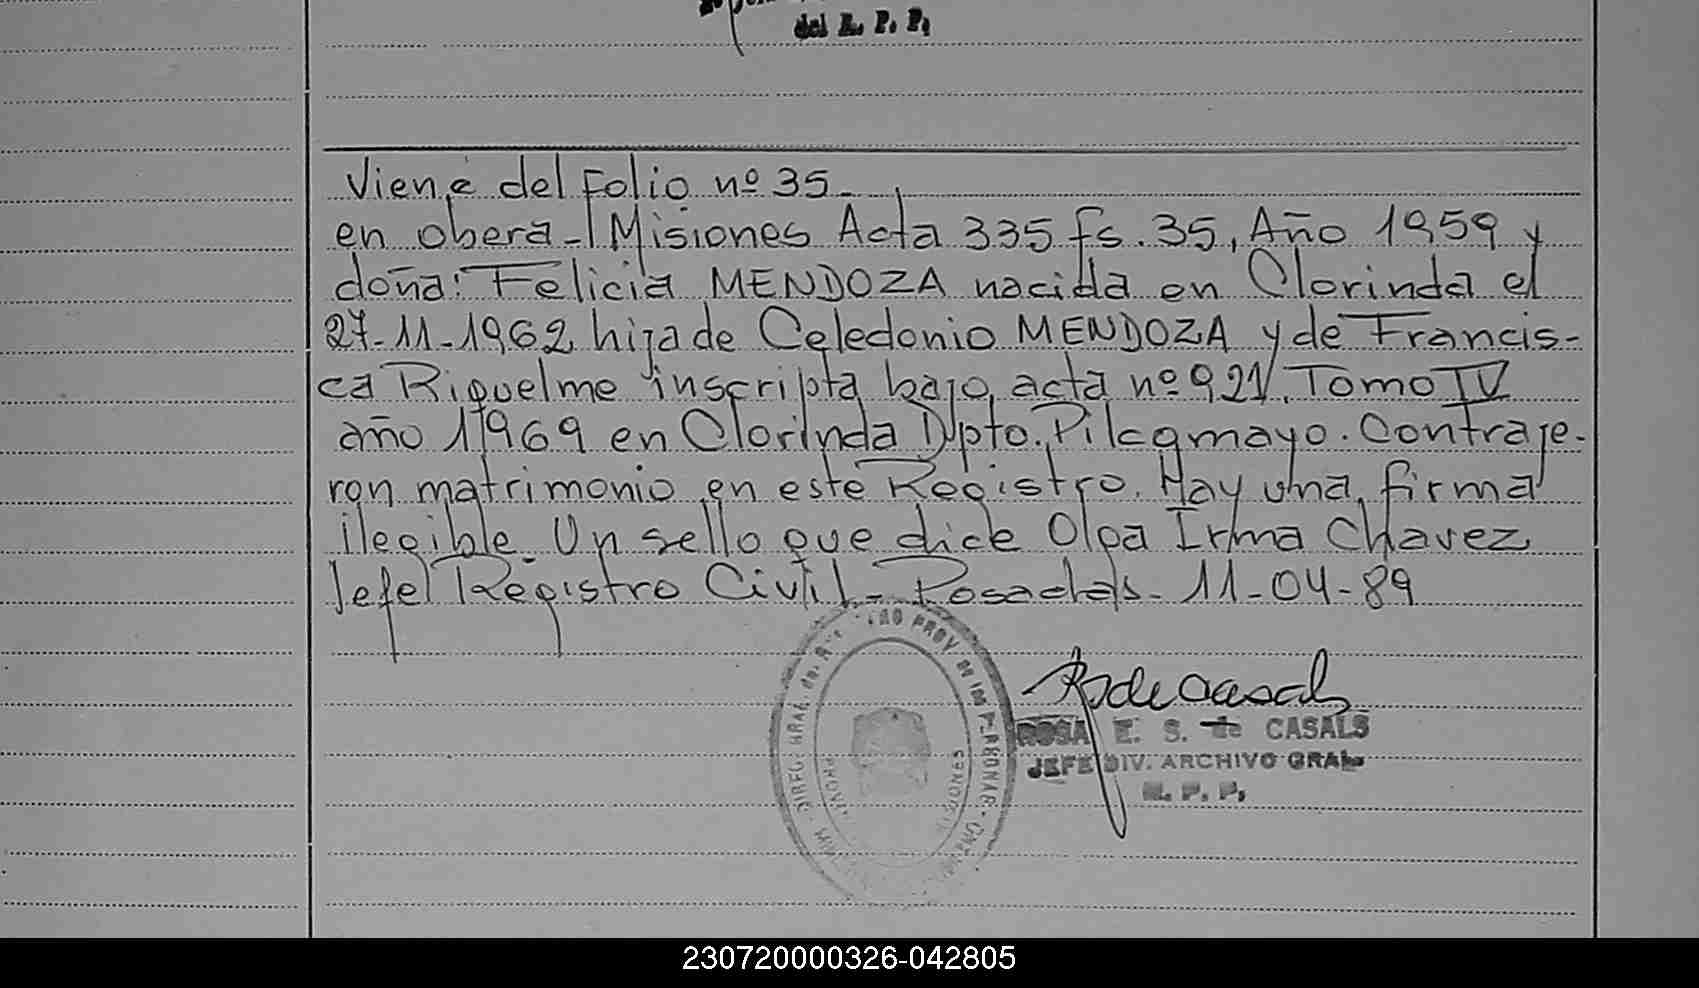 del R. P. P.
Viene del Folio nº 35-
en obera - Misiones Acta 335 fs. 35, Año 1959 y
doña: Felicia MENDOZA nacida en Clorinda el
27-11-1962 hija de Celedonio MENDOZA y de Francis-
ca Riquelme inscripta bajo acta nº 921, Tomo IV
año 1969 en Clorinda Dpto. Pilcomayo. Contraje-
ron matrimonio en este Registro. Hay una firma
ilegible. Un sello que dice Olga Irma Chavez
Jefe Registro Civil - Posadas - 11-04-89
ROSA E. S. de CASALS
JEFE DIV. ARCHIVO GRAL
R. P. P.
230720000326-042805